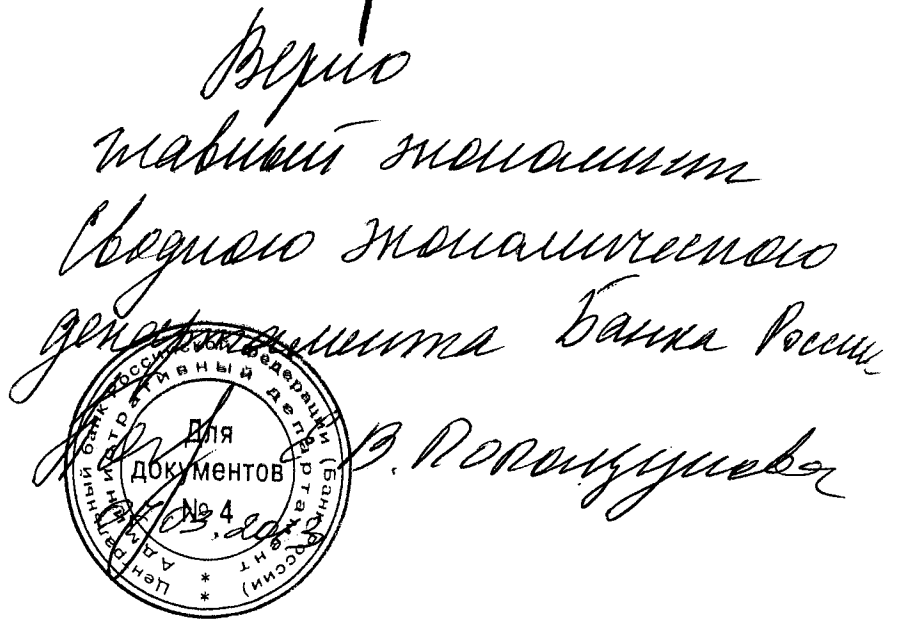 Верно
главный экономист
Сводного экономического
департамента Банка России
В.
Центральный банк Российской Федерации (Банк России)
Административный департамент
Для
документов
№ 4
* *